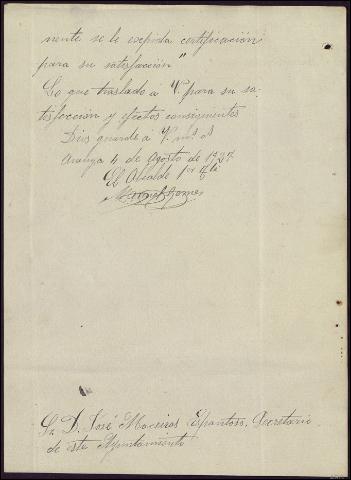 nente se le expida certificación
para su satisfacción"
Lo que traslado a V. para su sa-
tisfacción y efectos consiguientes
Dios guarde a V. m.s a.s
Aranga 4 de Agosto de 1927.
El Alcalde 1er
Manuel Gomez
Sr. D. José Maceiras Espantoso, Secretario
de este Ayuntamiento